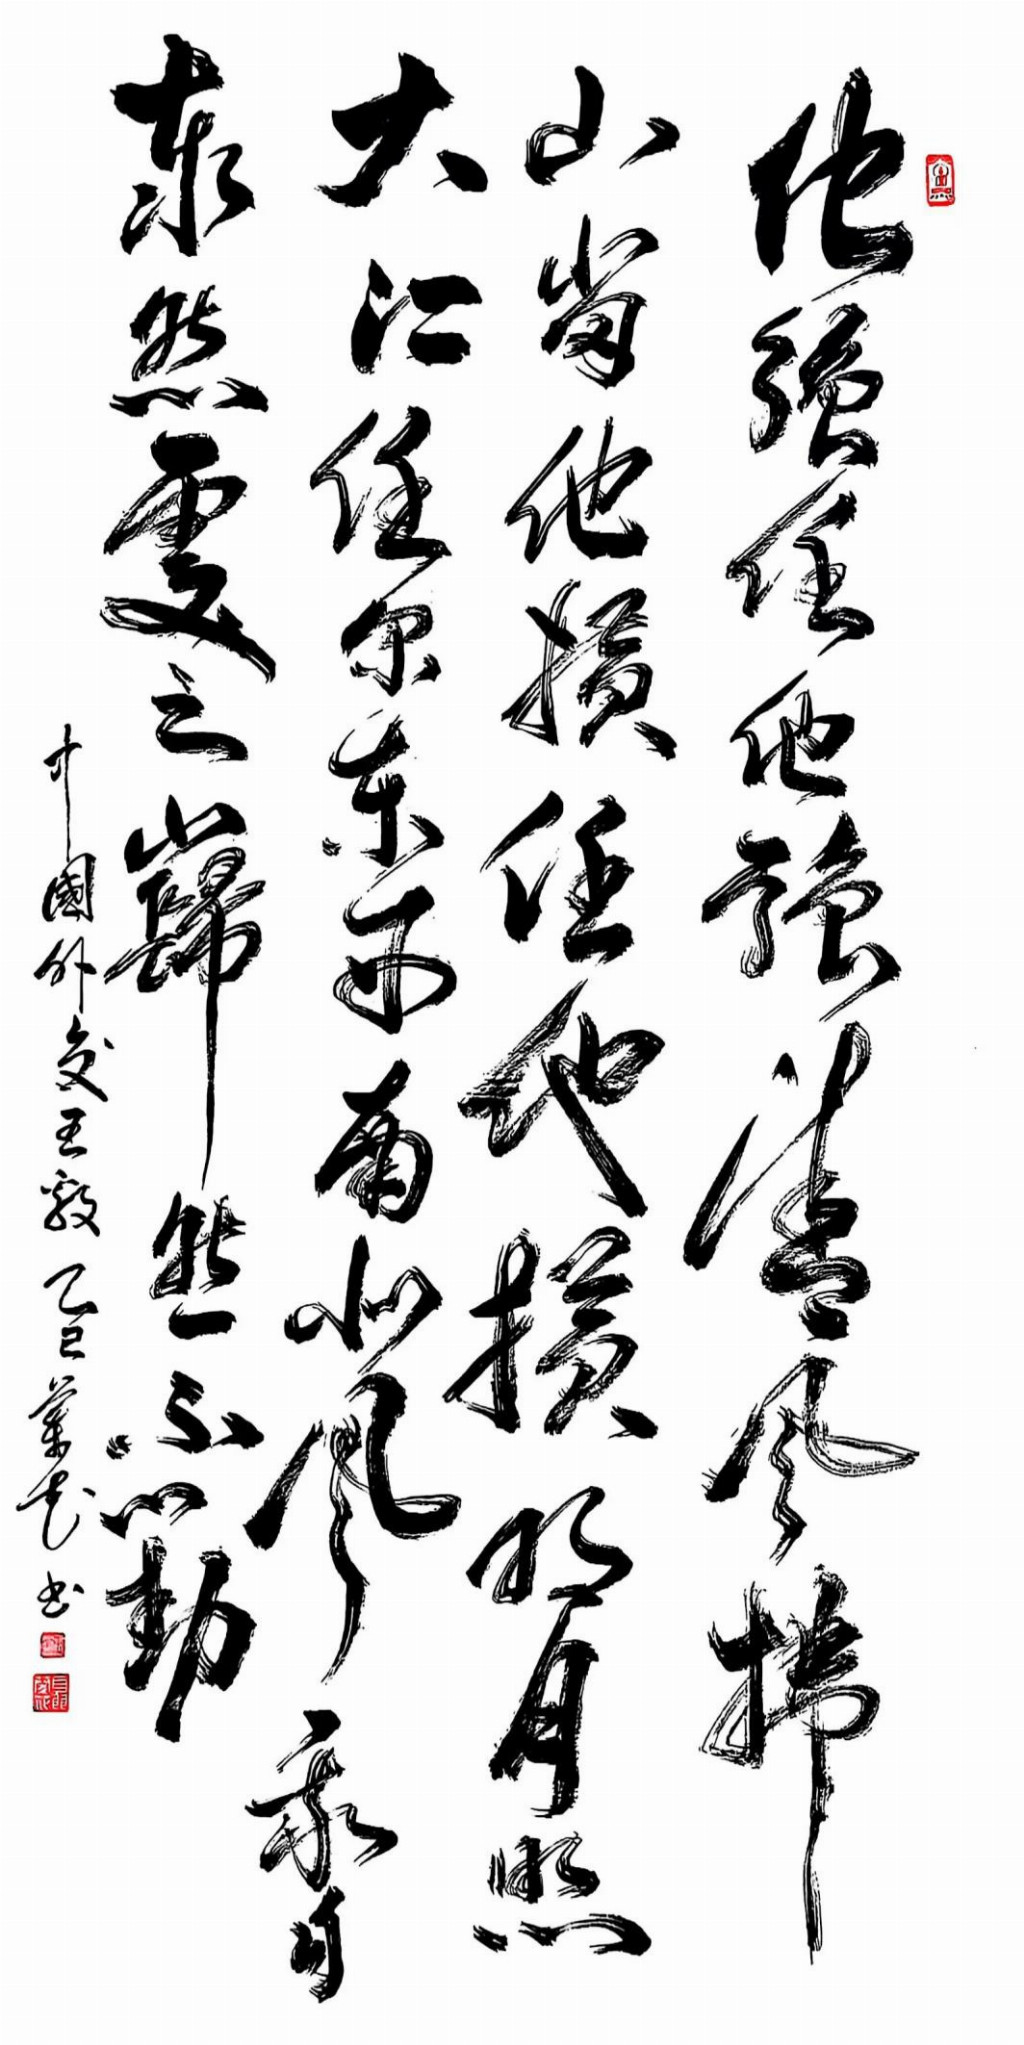 他强任他强清风拂
山岗他横任他横明月照
大江任尔东西南北风我自
泰然处之岿然不动
中國外交王毅乙巳
书